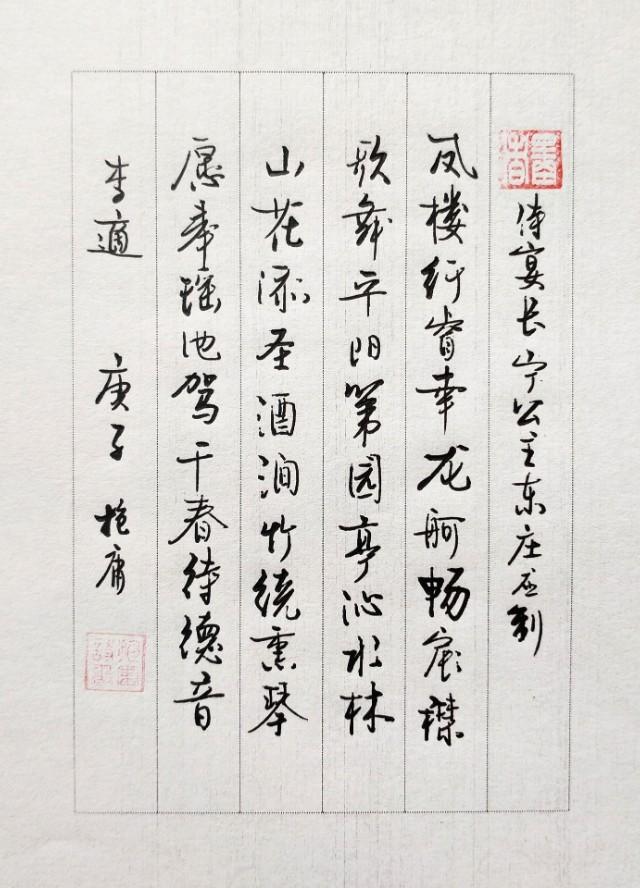 侍宴长宁公主东庄应制
凤楼纡睿幸龙舸畅宸襟
歌舞平阳第园亭沁水林
山花添圣酒涧竹绕熏琴
愿奉瑶池驾千春待德音
李適 庚子 抱庸